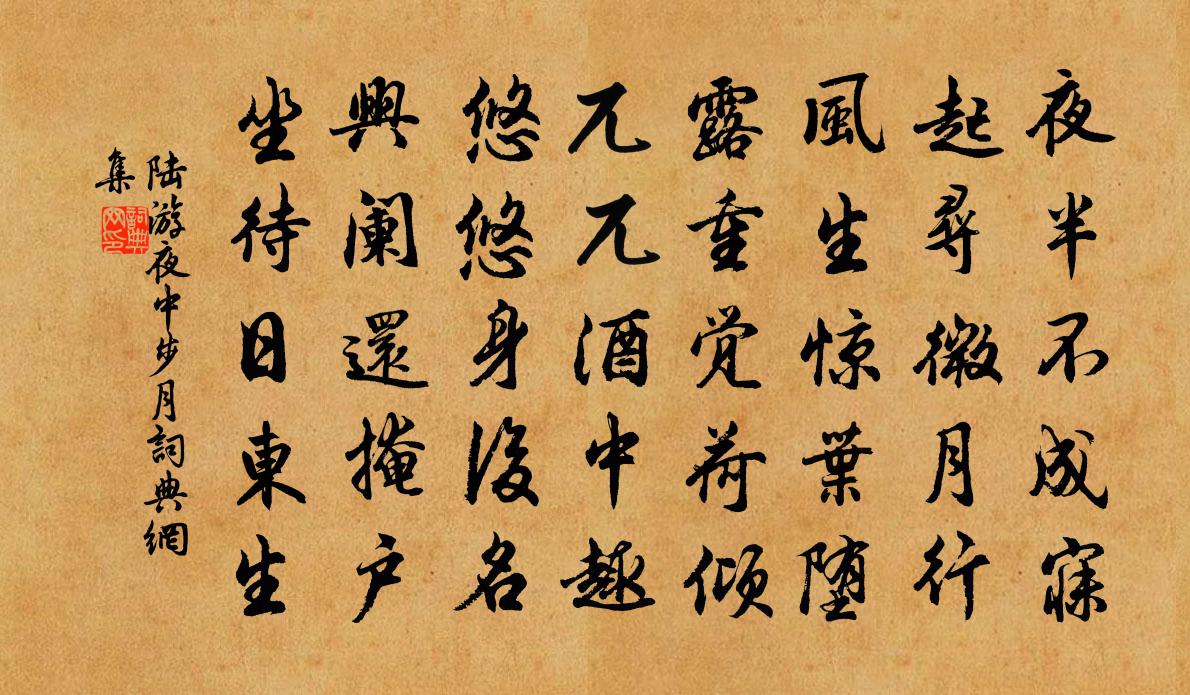 夜半不成寐
起尋微月行
風生惊葉堕
露重覚荷倾
兀兀酒中趣
悠悠身後名
興阑還掩户
坐待日東生
陆游夜中步月詞典網
集
詞典
网印